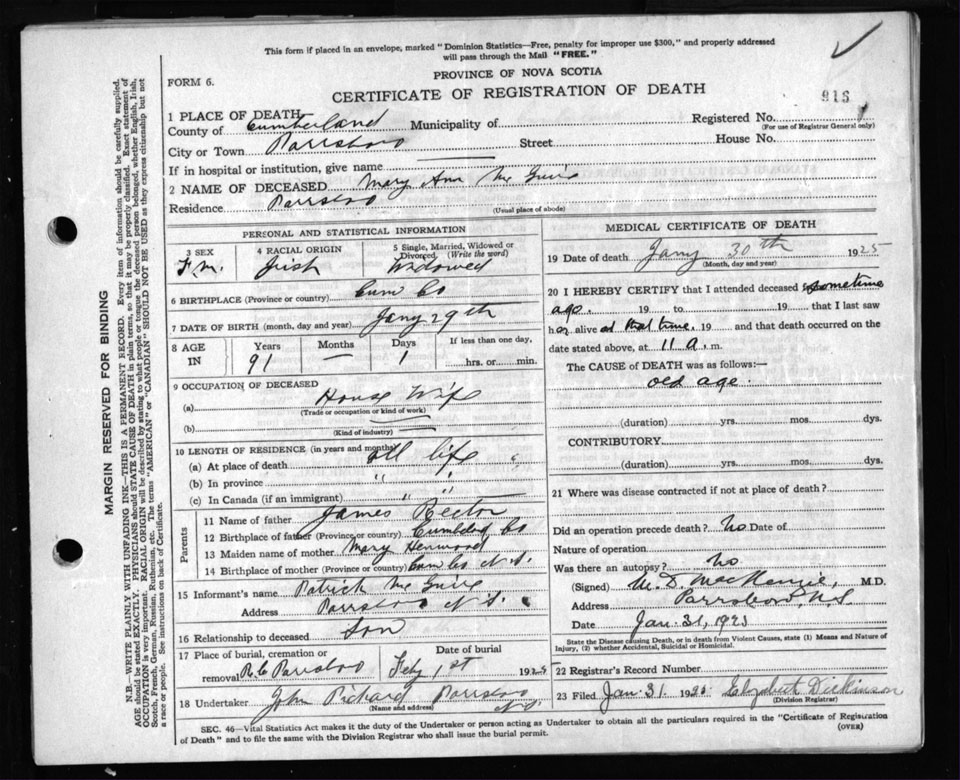 This form if placed in an envelope, marked "Dominion Statistics—Free, penalty for improper use $300," and properly addressed
will pass through the Mail "FREE."
PROVINCE OF NOVA SCOTIA
FORM 6.
CERTIFICATE OF REGISTRATION OF DEATH
916
1 PLACE OF DEATH
County of Cumberland Municipality of Registered No.
(For use of Registrar General only)
City or Town Parrsboro Street House No.
If in hospital or institution, give name
2 NAME OF DECEASED Mary Ann Mc Guire
Residence Parrsboro
(Usual place of abode)
PERSONAL AND STATISTICAL INFORMATION
3 SEX 4 RACIAL ORIGIN 5 Single, Married, Widowed or
Divorced (Write the word)
Fm. Irish Widowed
6 BIRTHPLACE (Province or country) Cum Co
7 DATE OF BIRTH (month, day and year) Jany 29th
8 AGE IN Years Months Days If less than one day,
91 — 1 hrs. or min.
9 OCCUPATION OF DECEASED
(a) House Wife
(Trade or occupation or kind of work)
(b)
(Kind of industry)
10 LENGTH OF RESIDENCE (in years and months)
(a) At place of death all life
(b) In province " "
(c) In Canada (if an immigrant) " "
Parents
11 Name of father James Rector
12 Birthplace of father (Province or country) Cumbld Co
13 Maiden name of mother Mary Henwood
14 Birthplace of mother (Province or country) Cum Co N.S.
15 Informant's name Patrick Mc Guire
Address Parrsboro N.S.
16 Relationship to deceased Son
17 Place of burial, cremation or Date of burial
removal R.C. Parrsboro Feby 1st 1925
18 Undertaker John Pickard Parrsboro
N.S.
(Name and address)
MEDICAL CERTIFICATE OF DEATH
19 Date of death Jany 30th 1925
(Month, day and year)
20 I HEREBY CERTIFY that I attended deceased sometime
ago. 19 to 19 that I last saw
her alive at that time. 19 and that death occurred on the
date stated above, at 11 a. m.
The CAUSE OF DEATH was as follows:
old age.
(duration) yrs. mos. dys.
CONTRIBUTORY
(duration) yrs. mos. dys.
21 Where was disease contracted if not at place of death?
Did an operation precede death? No. Date of
Nature of operation
Was there an autopsy? No
(Signed) M. D. MacKenzie, M.D.
Address Parrsboro, N.S
Date Jan. 31, 1925
State the Disease causing Death, or in death from Violent Causes, state (1) Means and Nature of
Injury, (2) whether Accidental, Suicidal or Homicidal.
22 Registrar's Record Number
23 Filed Jan. 31 1925 Elizabeth Dickinson
(Division Registrar)
SEC. 46—Vital Statistics Act makes it the duty of the Undertaker or person acting as Undertaker to obtain all the particulars required in the "Certificate of Registration
of Death" and to file the same with the Division Registrar who shall issue the burial permit.
(OVER)
MARGIN RESERVED FOR BINDING
N.B.—WRITE PLAINLY WITH UNFADING INK—THIS IS A PERMANENT RECORD. Every item of information should be carefully supplied.
AGE should be stated EXACTLY. PHYSICIANS should STATE CAUSE OF DEATH in plain terms, so that it may be properly classified. Exact statement of
OCCUPATION is very important. RACIAL ORIGIN will be described by stating to what people or tongue the deceased person belonged, whether English, Irish,
Scotch, French, German, Russian, Ruthenian, etc. The terms "AMERICAN" or "CANADIAN" SHOULD NOT BE USED as they express citizenship but not
a race or people. See instructions on back of Certificate.